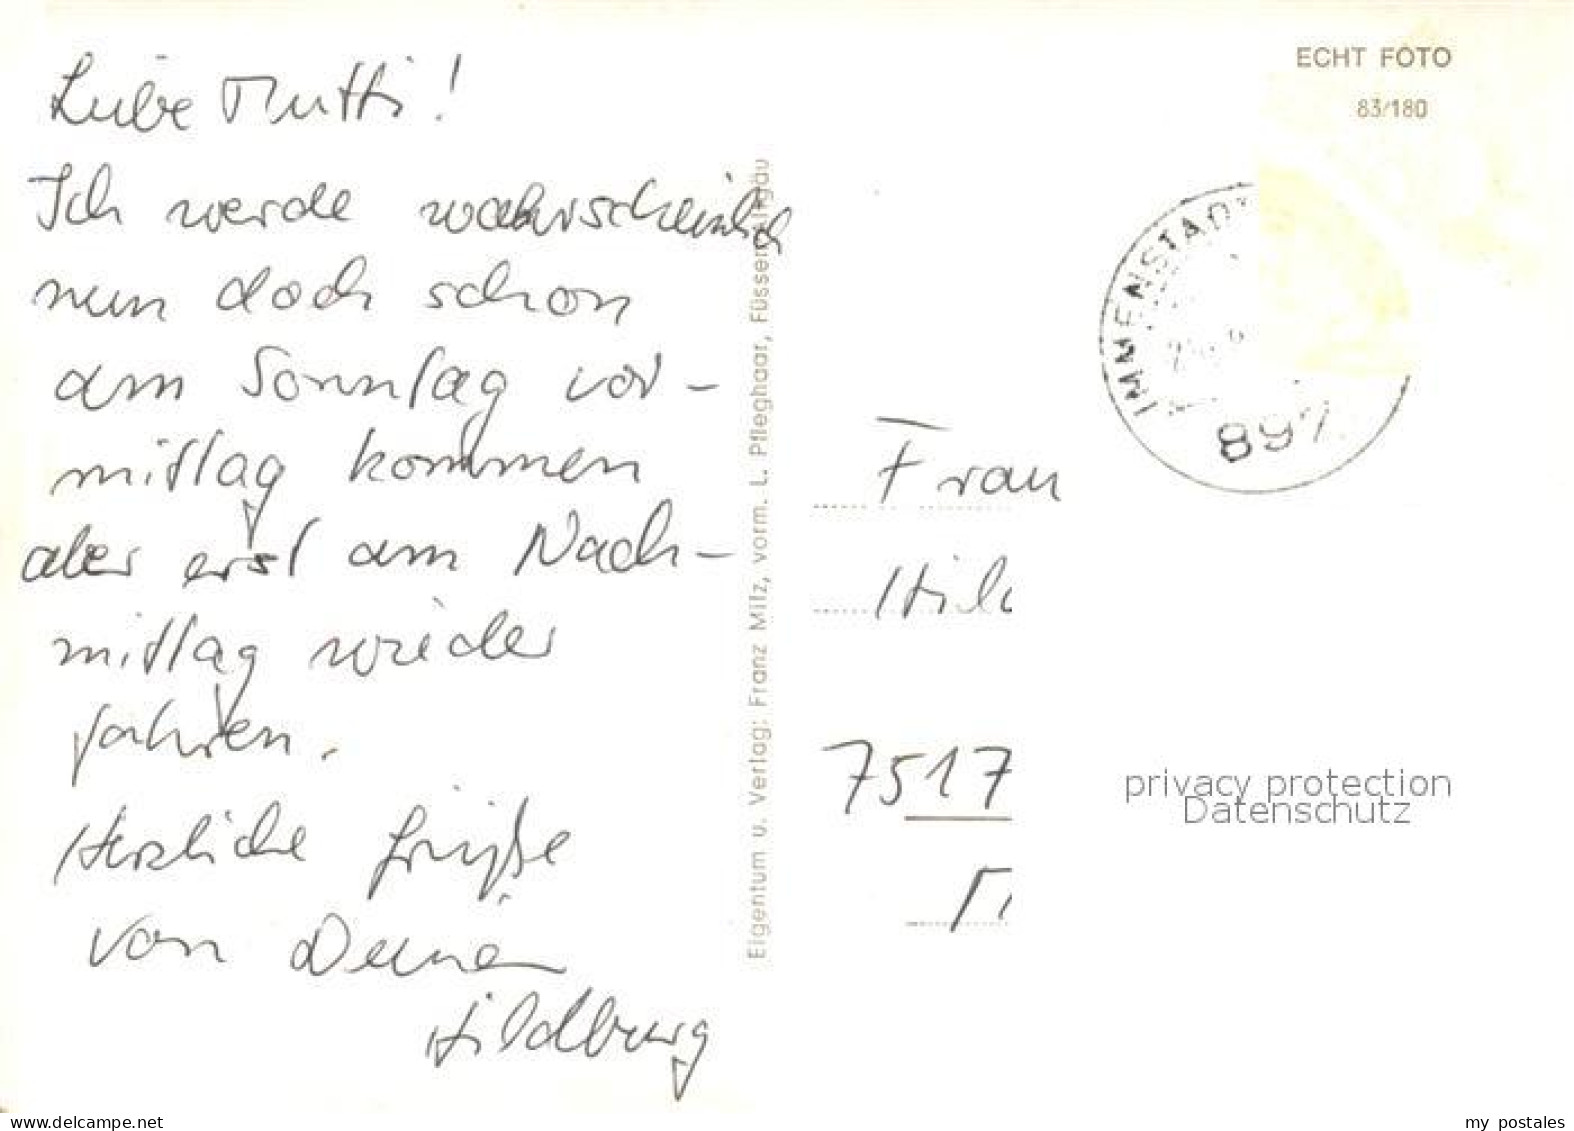 Liebe Mutti!
Ich werde wahrscheinlich
nun doch schon
am Sonntag vor-
mittag kommen
aber erst am Nach-
mittag wieder
fahren.
Herzliche Grüße
von Deiner
Hildburg
Eigentum u. Verlag: Franz Milz, vorm. L. Pfleghaar, Füssen/Allgäu
ECHT FOTO
83/180
IMMENSTADT
897
Frau
Hild
7517
privacy protection
Datenschutz
www.ansichtskartencenter.de
my postales